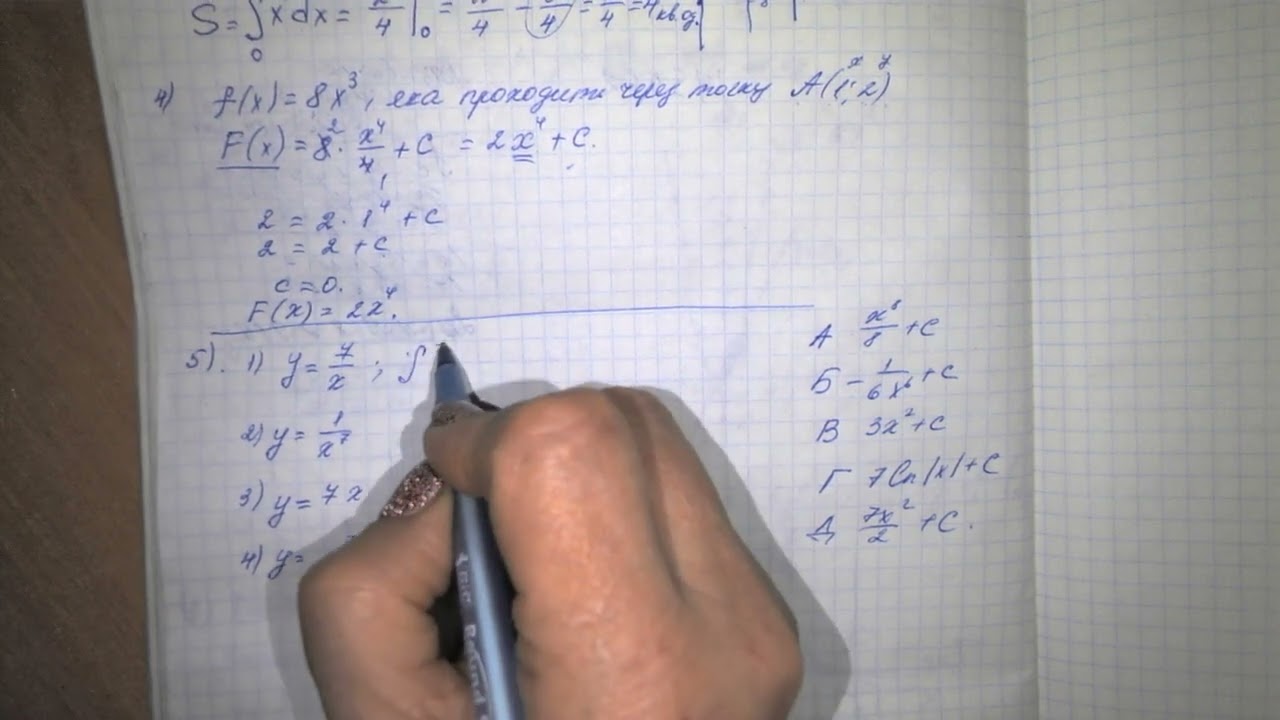 S = ∫₀ x dx = x/4 |₀ = /4 - 0/4 = /4 = 4 кв.од.
4) f(x) = 8x³, яка проходить через точку A(1;2)
x y
F(x) = 8² · x⁴/4 + C = 2x⁴ + C.
1
2 = 2 · 1⁴ + C
2 = 2 + C
C = 0.
F(x) = 2x⁴.
5). 1) y = 7/x ; ∫
2) y = 1/x⁷
3) y = 7x
4) y =
А x⁸/8 + C
Б - 1/6x⁶ + C
В 3x² + C
Г 7ln|x| + C
Д 7x²/2 + C.